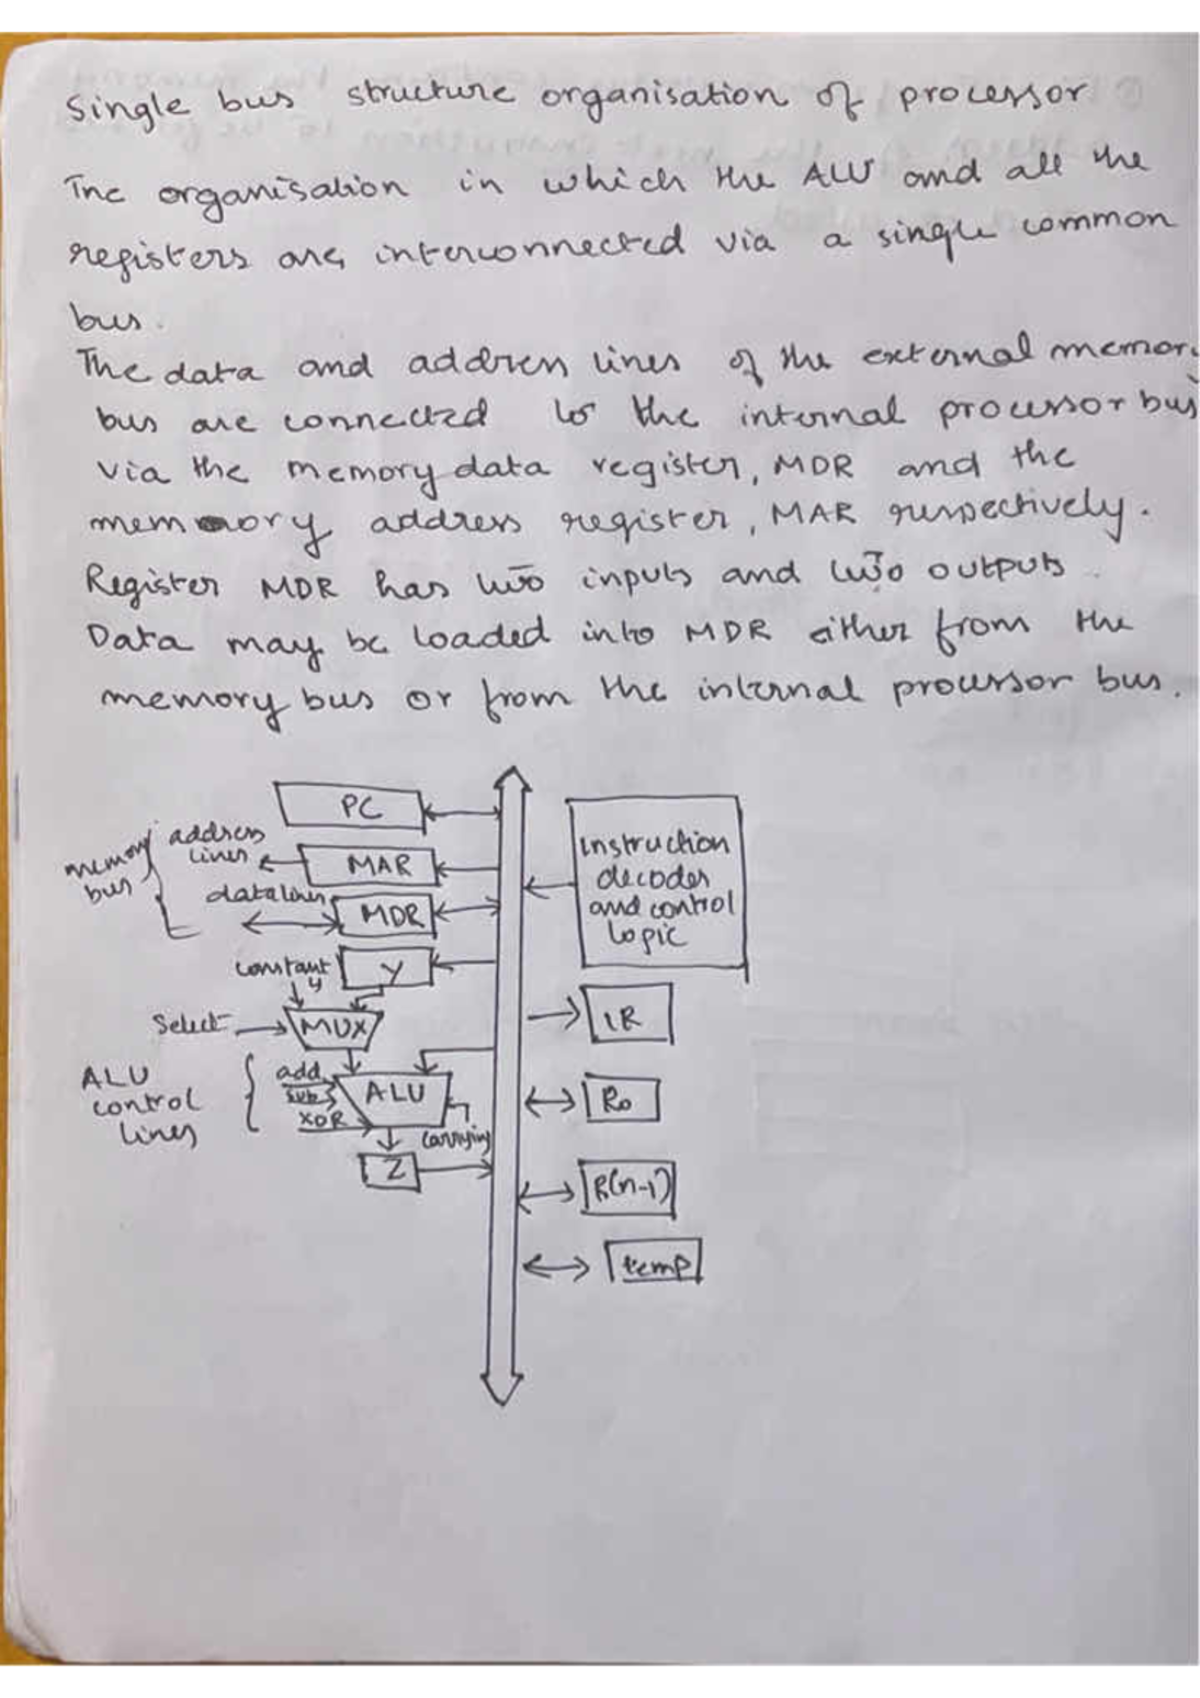 Single bus structure organisation of processor
The organisation in which the ALU and all the
registers are interconnected via a single common
bus.
The data and address lines of the external memor
bus are connected to the internal processor bus
via the memory data register, MDR and the
memory address register, MAR respectively.
Register MDR has two inputs and two outputs.
Data may be loaded into MDR either from the
memory bus or from the internal processor bus.
PC
memory
bus
address
lines
MAR
data lines
MDR
constant
4
Y
Select
MUX
ALU
control
lines
add
sub
XOR
ALU
carryin
Z
instruction
decoder
and control
logic
IR
R0
R(n-1)
temp